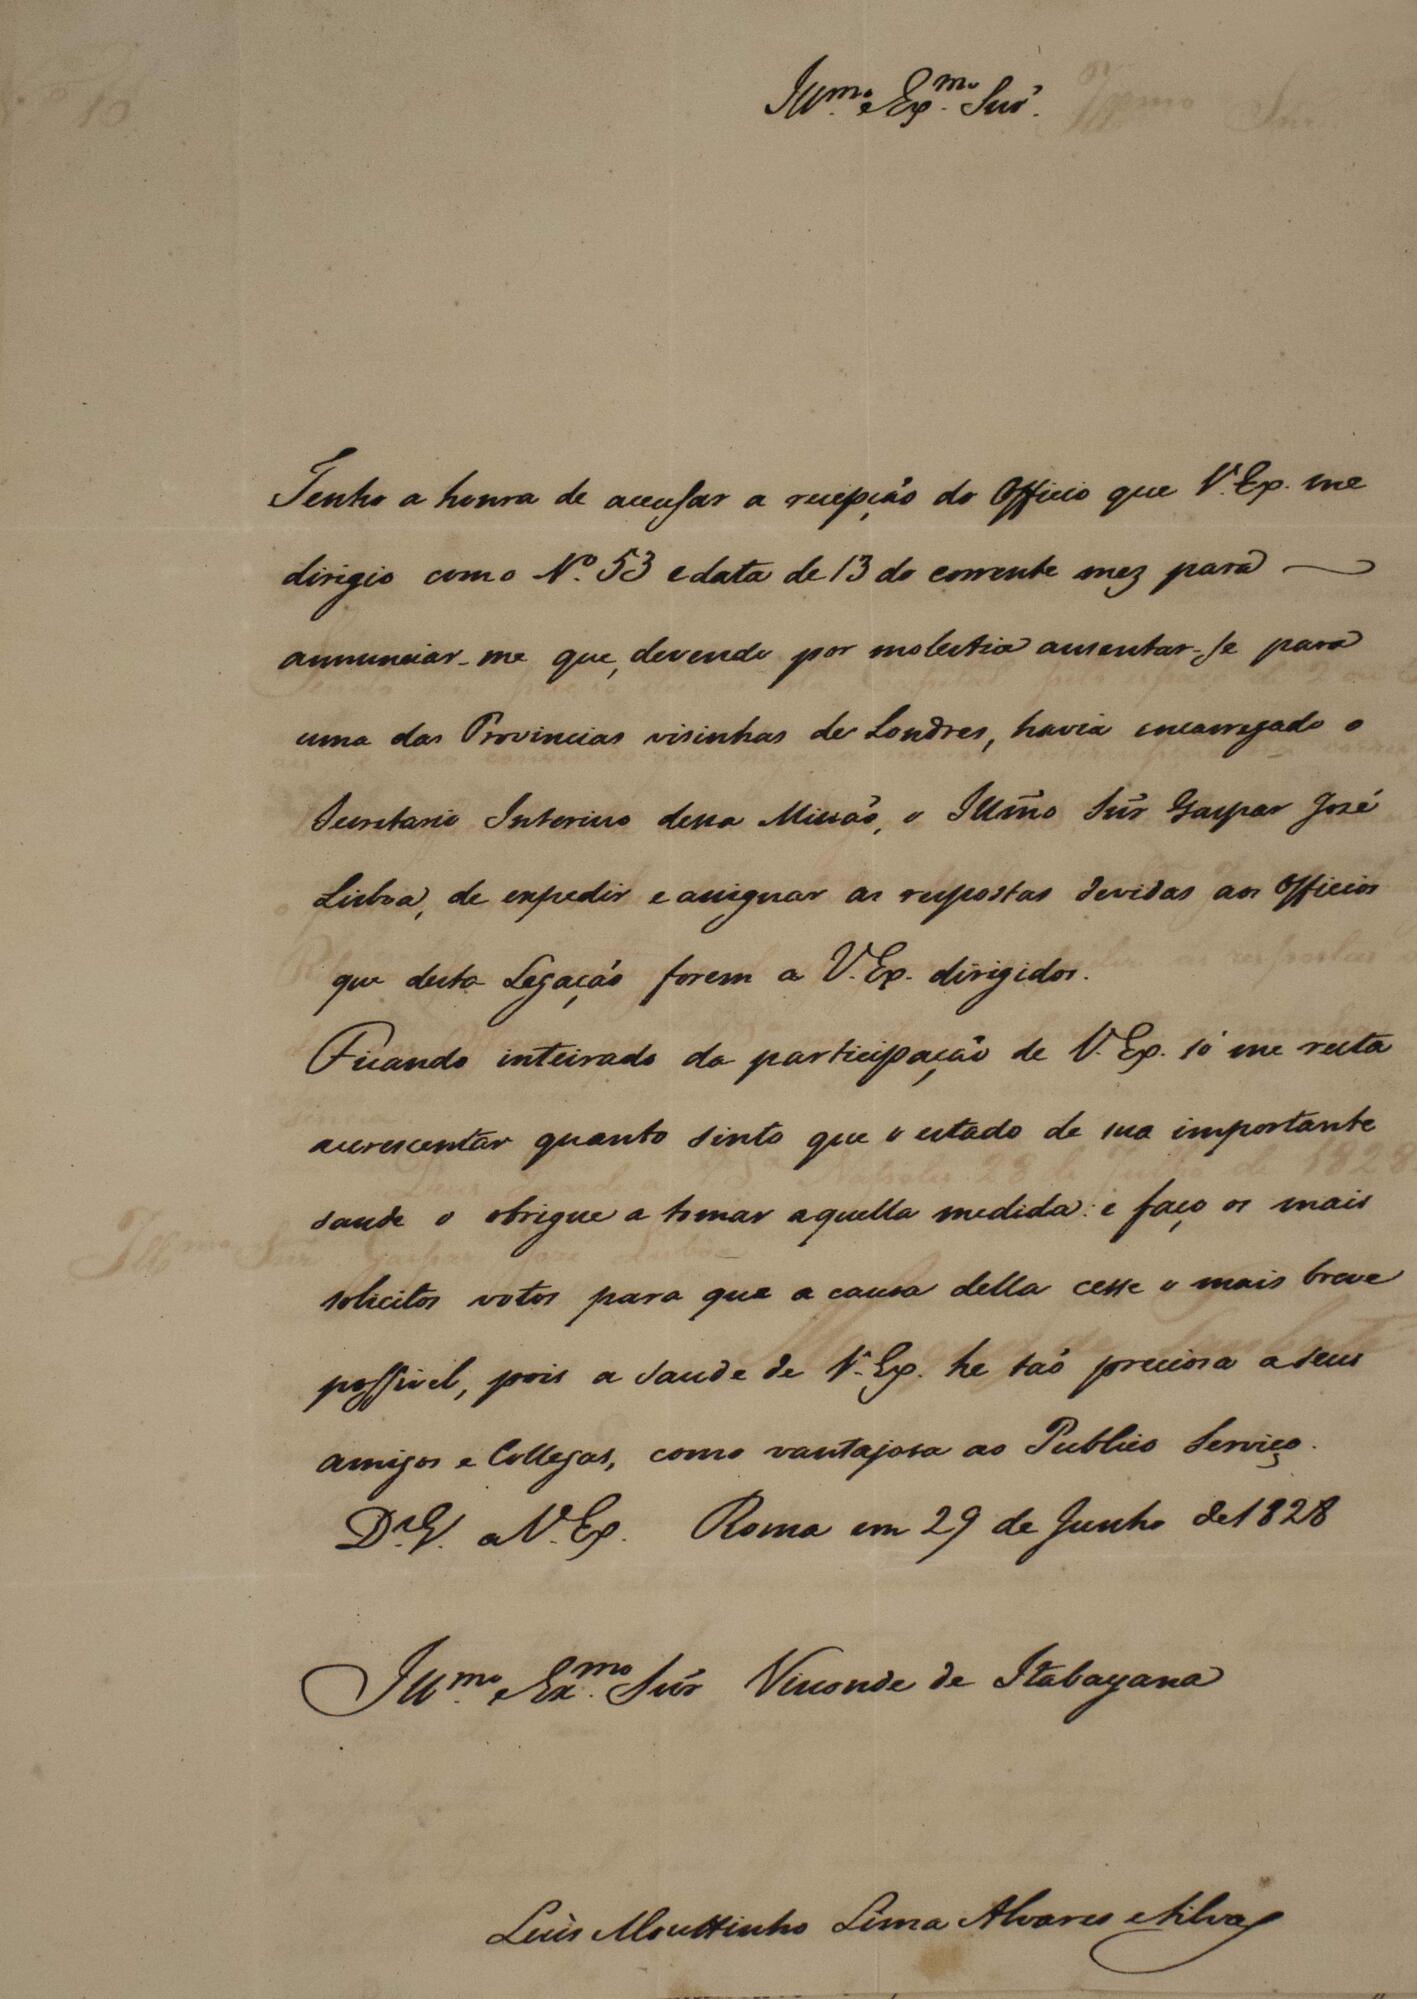 Ill.mo e Ex.mo Snr.
Tenho a honra de accusar a recepção do Officio que V. Ex. me
dirigio com o N.º 53 e data de 13 do corrente mez para
annunciar-me que, devendo por molestia ausentar-se para
uma das Provincias visinhas de Londres, havia encarregado o
Secretario Interino dessa Missão, o Illmo Snr Gaspar José
Lisboa, de expedir e assignar as respostas devidas aos Officios
que desta Legação forem a V. Ex. dirigidos.
Ficando inteirado da participação de V. Ex. só me resta
accrescentar quanto sinto que o estado de sua importante
saude o obrigue a tomar aquella medida: e faço os mais
solicitos votos para que a causa della cesse o mais breve
possivel, pois a saude de V. Ex. he taõ preciosa a seus
amigos e Collegas, como vantajosa ao Publico Serviço.
D.s G. a V. Ex. Roma em 29 de Junho de 1828
Ill.mo e Ex.mo Snr Visconde de Itabayana
Luis Mouttinho Lima Alvares e Silva